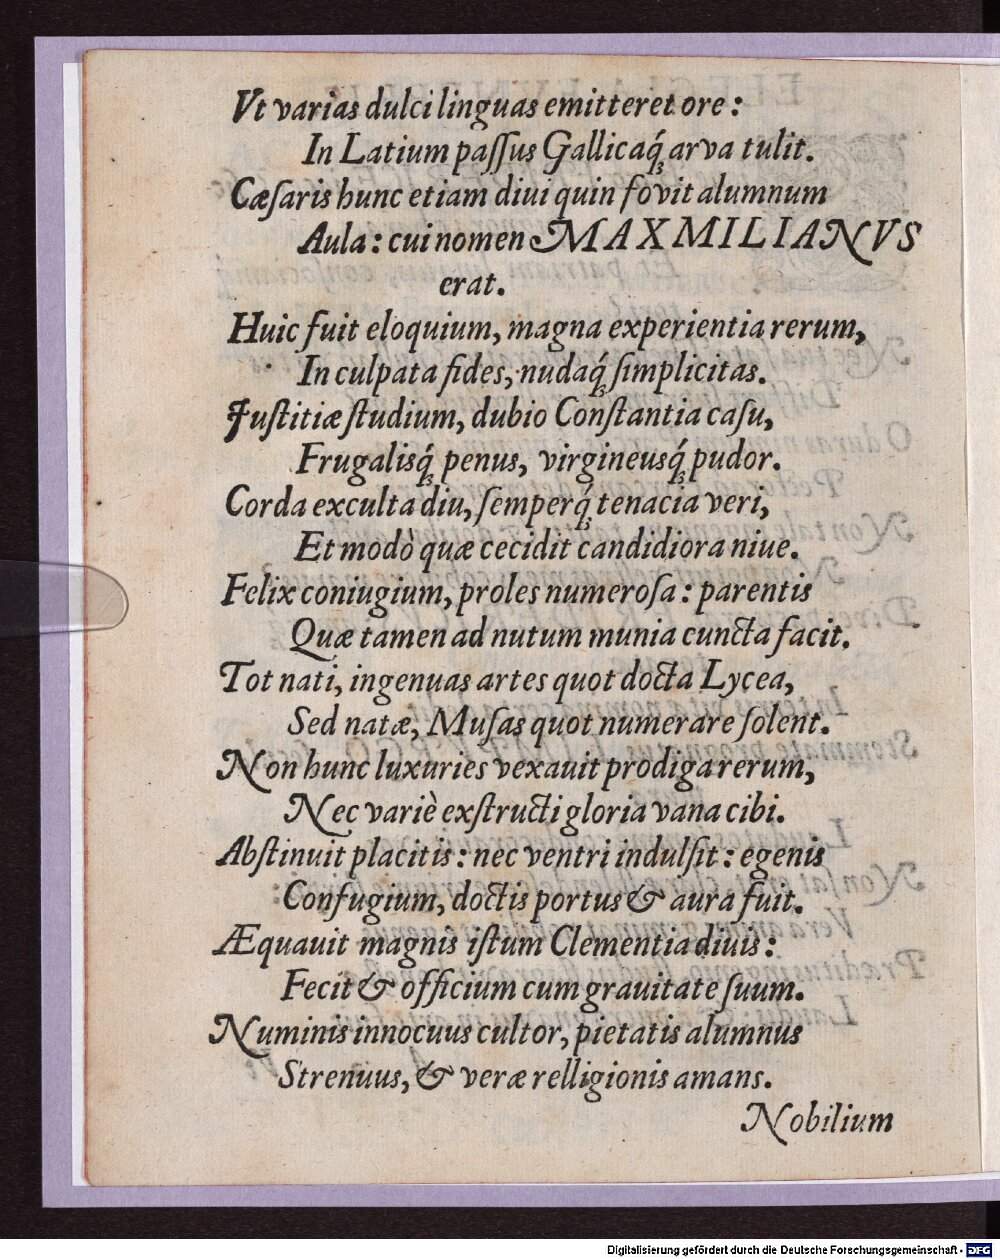 Vt varias dulci linguas emitteret ore:
In Latium paſſus Gallicaq́ꝫ arva tulit.
Cæſaris hunc etiam diui quin fovit alumnum
Aula: cui nomen MAXMILIANVS
erat.
Huic fuit eloquium, magna experientia rerum,
In culpata fides, nudaq́ꝫ ſimplicitas.
Juſtitiæ ſtudium, dubio Conſtantia caſu,
Frugalisq́ꝫ penus, virgineusq́ꝫ pudor.
Corda exculta diu, ſemperq́ꝫ tenacia veri,
Et modò quæ cecidit candidiora niue.
Felix coniugium, proles numeroſa: parentis
Quæ tamen ad nutum munia cuncta facit.
Tot nati, ingenuas artes quot docta Lycea,
Sed natæ, Muſas quot numerare ſolent.
Non hunc luxuries vexauit prodiga rerum,
Nec variè exſtructi gloria vana cibi.
Abſtinuit placitis: nec ventri indulſit: egenis
Confugium, doctis portus & aura fuit.
Æquauit magnis iſtum Clementia diuis:
Fecit & officium cum grauitate ſuum.
Numinis innocuus cultor, pietatis alumnus
Strenuus, & veræ relligionis amans.
Nobilium
Digitalisierung gefördert durch die Deutsche Forschungsgemeinschaft - DFG